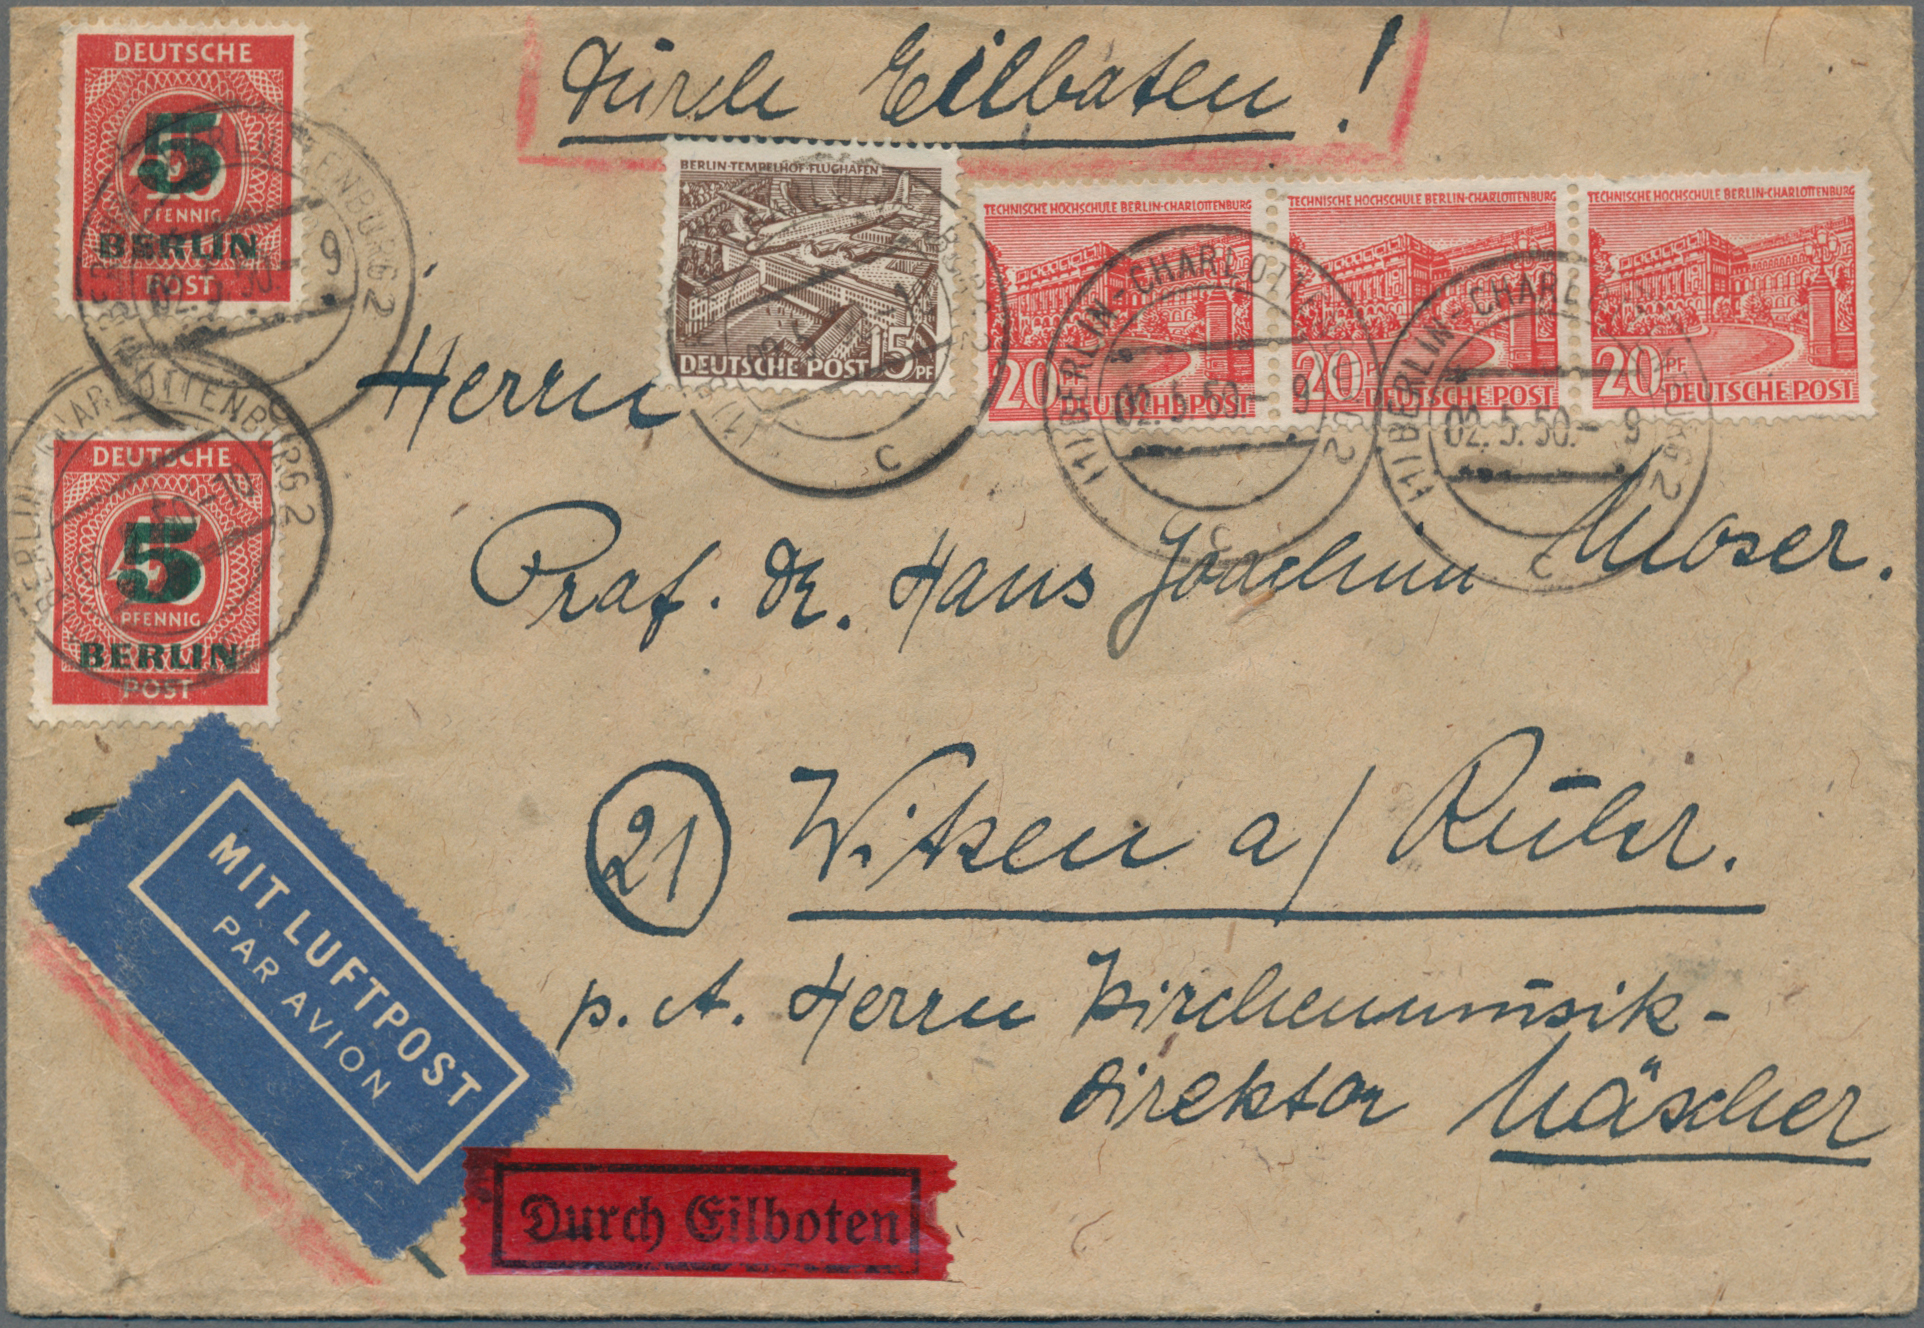 Durch Eilboten!
DEUTSCHE
5
PFENNIG
BERLIN
POST
BERLIN-TEMPELHOF-FLUGHAFEN
DEUTSCHE POST 15 PF
TECHNISCHE HOCHSCHULE BERLIN-CHARLOTTENBURG
20 PF DEUTSCHE POST
TECHNISCHE HOCHSCHULE BERLIN-CHARLOTTENBURG
20 PF DEUTSCHE POST
TECHNISCHE HOCHSCHULE BERLIN-CHARLOTTENBURG
20 PF DEUTSCHE POST
(1) BERLIN-CHARLOTTENBURG 2
02.5.50.- 9
c
(1) BERLIN-CHARLOTTENBURG 2
02.5.50.- 9
c
Herrn
DEUTSCHE
5
PFENNIG
BERLIN
POST
Prof. Dr. Hans Joachim Moser.
21 Witten a/Ruhr.
p. A. Herrn Kirchenmusik-
direktor Mäscher
MIT LUFTPOST
PAR AVION
Durch Eilboten